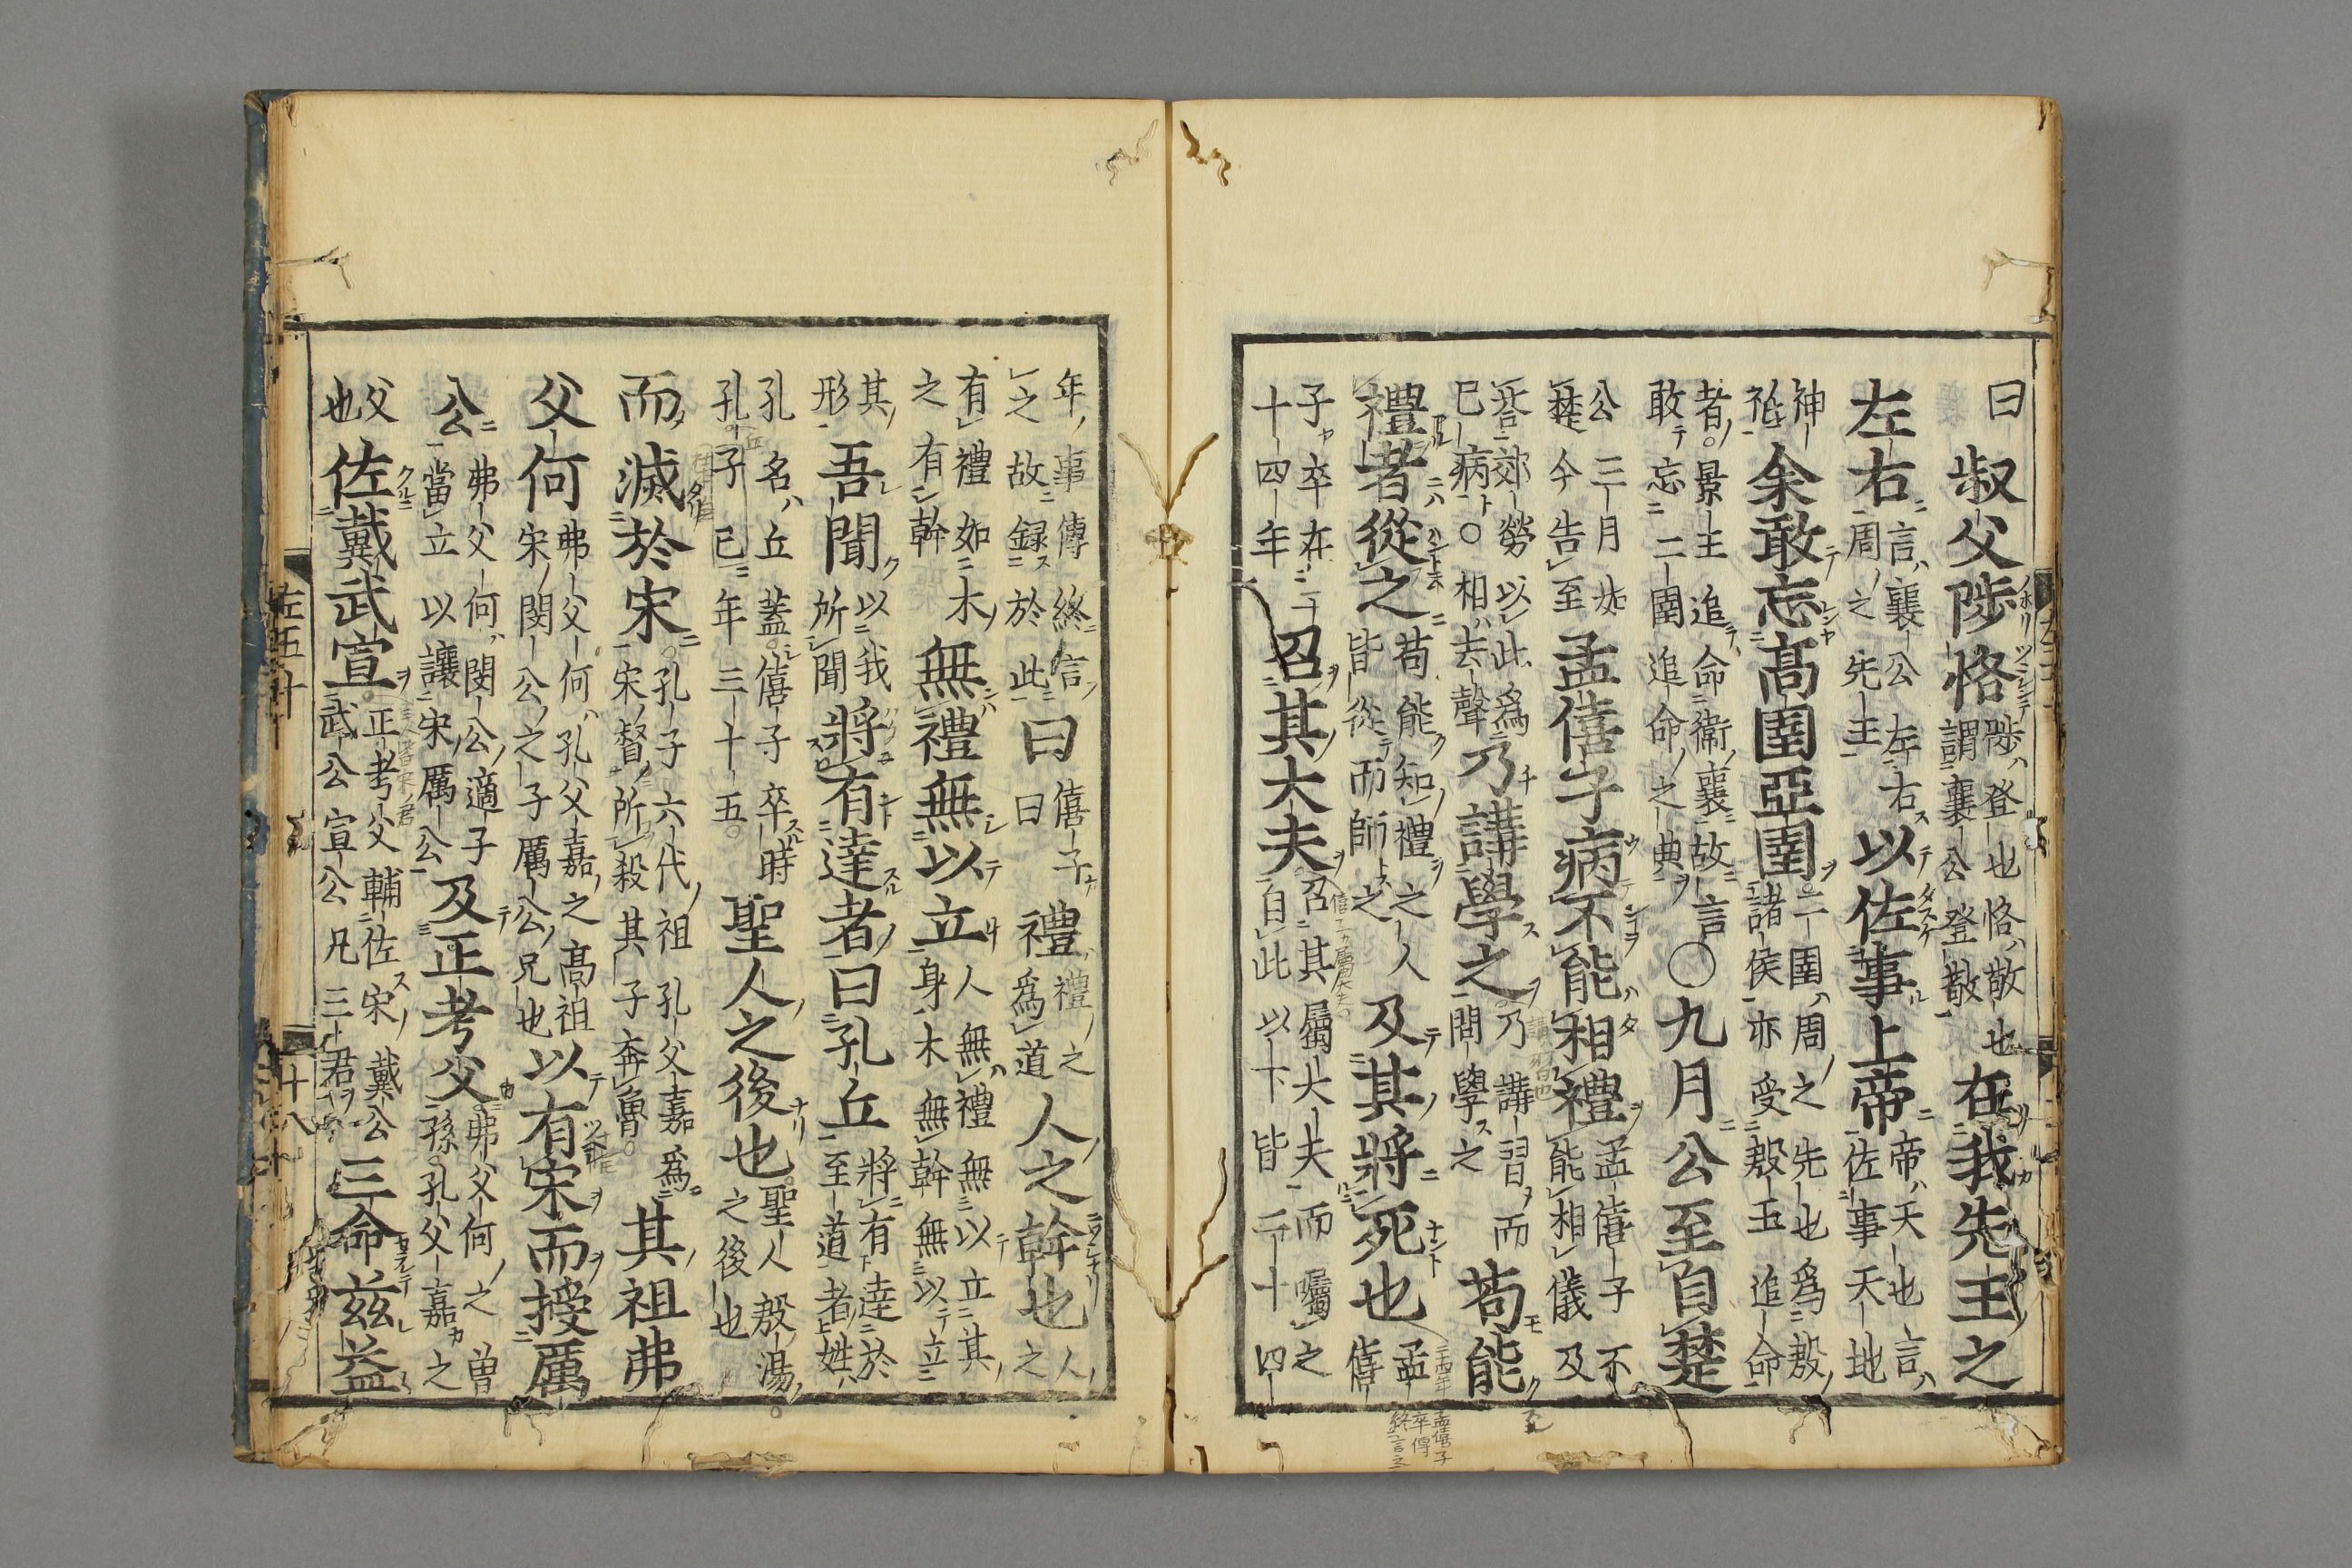 曰叔父陟恪陟登也恪敬也謂襄公登敬在我先王之
左右言襄公左右周之先王以佐事上帝帝天也言佐事天地
神祇余敢忘高圉亞圉二圉周之先也為殷諸侯亦受殷王追命
者景王追命衛襄故言敢忘二圉追命之典〇九月公至自楚
公三月如楚今告至孟僖子病不能相禮孟僖子不能相儀及
荅郊勞以此為已病〇相去聲乃講學之乃講習而問學之苟能
禮者從之苟能知禮之人皆從而師之及其將死也孟僖
子卒在二十四年召其大夫召其屬大夫而囑之自此以下皆二十四
年事傳終言之故録於此曰僖子曰禮禮之為道人之幹也人之
有禮如木之有幹無禮無以立人無禮無以立其身木無幹無以立
其形吾聞以我所聞將有達者曰孔丘將有達於至道者姓
孔名丘蓋僖子卒時孔子已年三十五聖人之後也聖人殷湯之後也
而滅於宋孔子六代祖孔父嘉為宋督所殺其子奔魯其祖弗
父何弗父何孔父嘉之高祖宋閔公之子厲公兄也以有宋而授厲
公弗父何閔公適子當立以讓宋厲公及正考父弗父何之曾孫孔父嘉之
父也佐戴武宣正考父輔佐宋戴公武公宣公凡三君三命茲益
左五十 十八